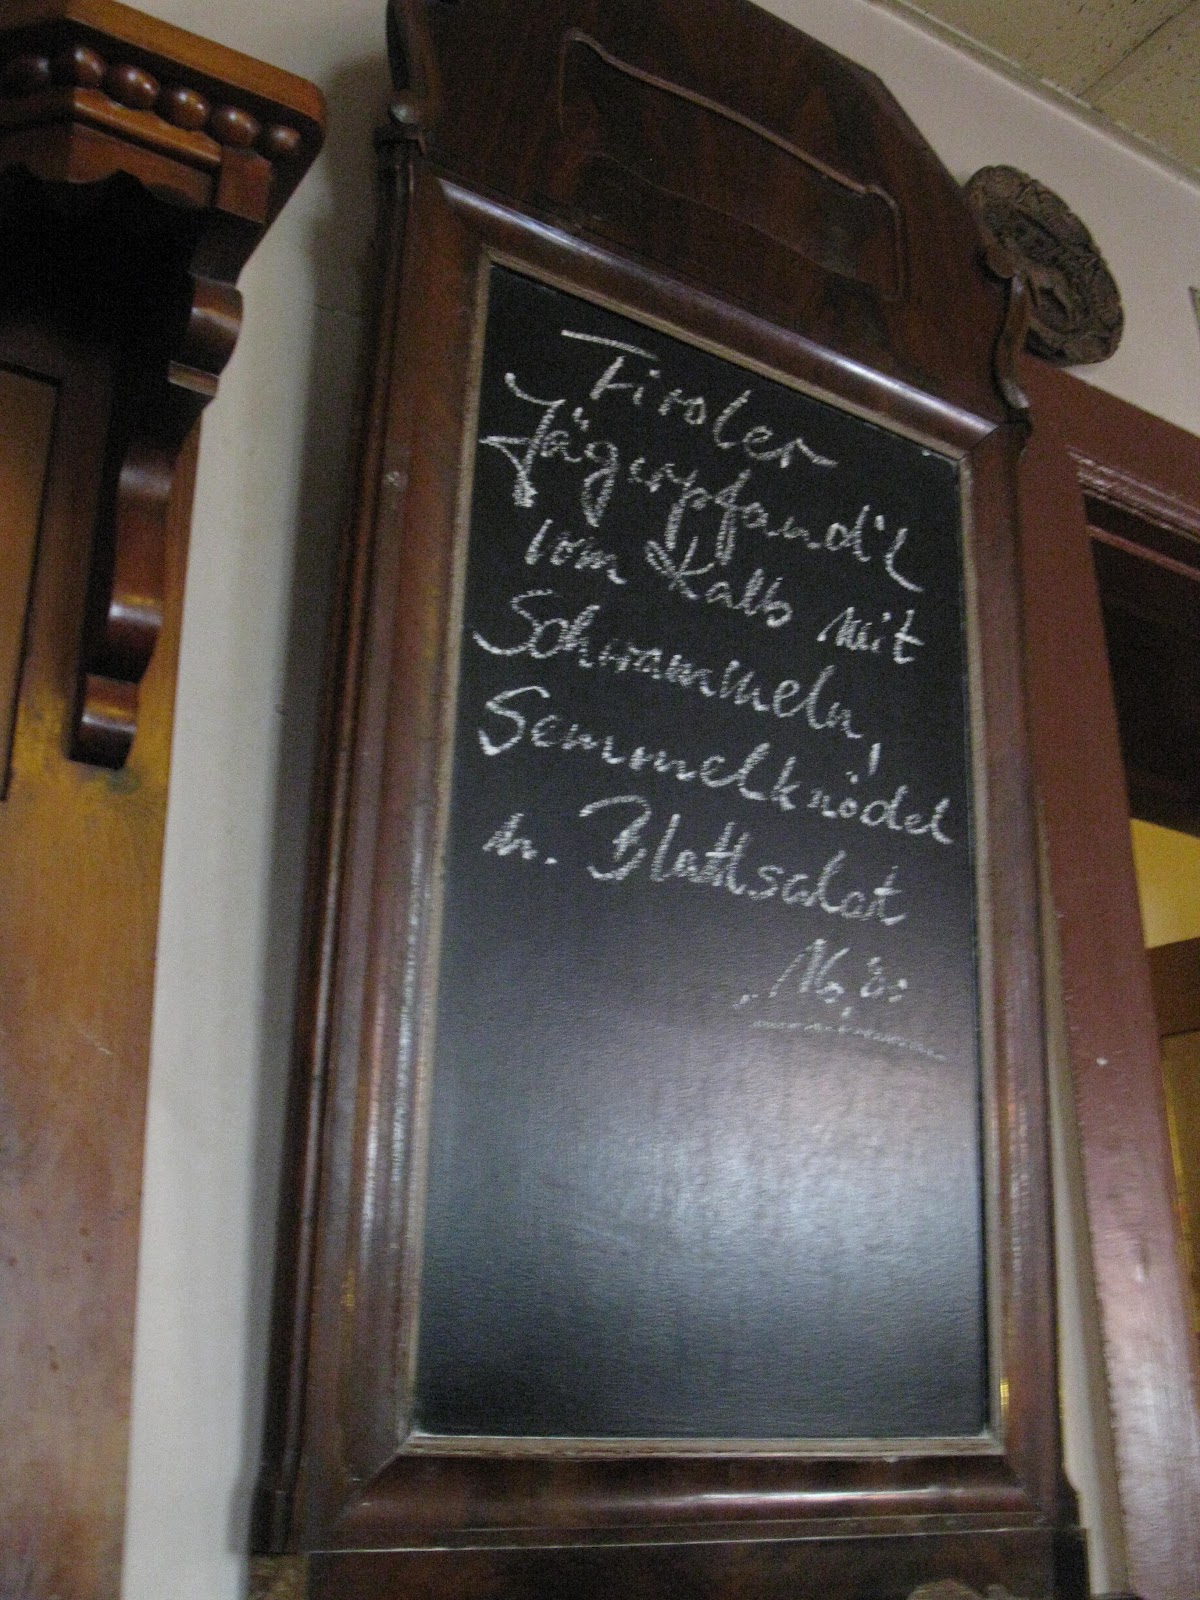 Tiroler
Jägerpfand'l
vom Kalb mit
Schwammeln,
Semmelknödel
u. Blattsalat